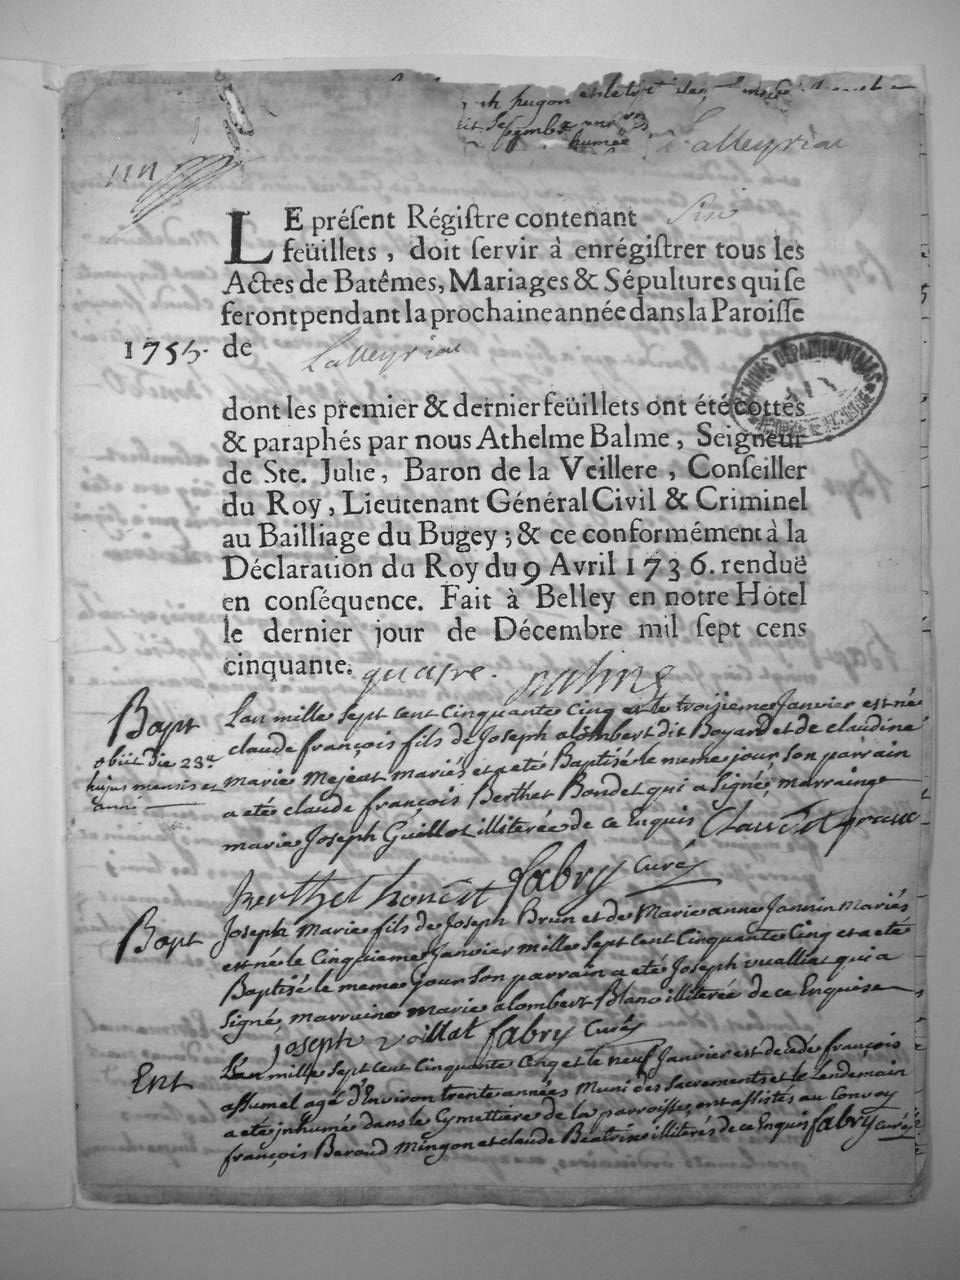 hugon
Septembre
humée Lalleyriat
LE préſent Régiſtre contenant Six
feüillets, doit ſervir à enrégiſtrer tous les
Actes de Batêmes, Mariages & Sépultures qui ſe
feront pendant la prochaine année dans la Paroiſſe
1755. de Lalleyriat
ARCHIVES DÉPARTEMENTALES
dont les premier & dernier feüillets ont été cottés
& paraphés par nous Athelme Balme, Seigneur
de Ste. Julie, Baron de la Veillere, Conſeiller
du Roy, Lieutenant Général Civil & Criminel
au Bailliage du Bugey; & ce conformément à la
Déclaration du Roy du 9 Avril 1736. renduë
en conſéquence. Fait à Belley en notre Hôtel
le dernier jour de Décembre mil ſept cens
cinquante. quatre.
Bapt
Lan mille sept cent Cinquante Cinq et le troisieme Janvier est né
claude françois fils de Joseph alombert dit Boyard et de claudine
obiit die 23a
hujus mensis et
anni
marie Mejeat mariés et a eté Baptisé le meme jour son parrain
a eté claude françois Berthet Bondet qui a signé, marraine
marie Joseph Guillot illiterée de ce Enquis Claude françois
berthet bondet fabry curé
Bapt
Joseph Marie fils de Joseph Brun et de Marie anne Jannin Mariés
est né le Cinquieme Janvier mille sept cent Cinquante Cinq et a eté
Baptisé le meme jour son parrain a eté Joseph vualliat qui a
signé, marraine Marie alombert Blanc illiterée de ce Enquise
joseph voillat fabry Curé
Ent
L'an mille sept cent Cinquante Cinq et le neuf Janvier est decedé françois
assumel agé d'Environ trente années Muni des Sacrements et le Lendemain
a eté inhumé dans le Cymettiere de la parroisse, ont assistés au Convoy
françois Beroud Mingon et claude Béatrix illiterés de ce Enquis fabry curé